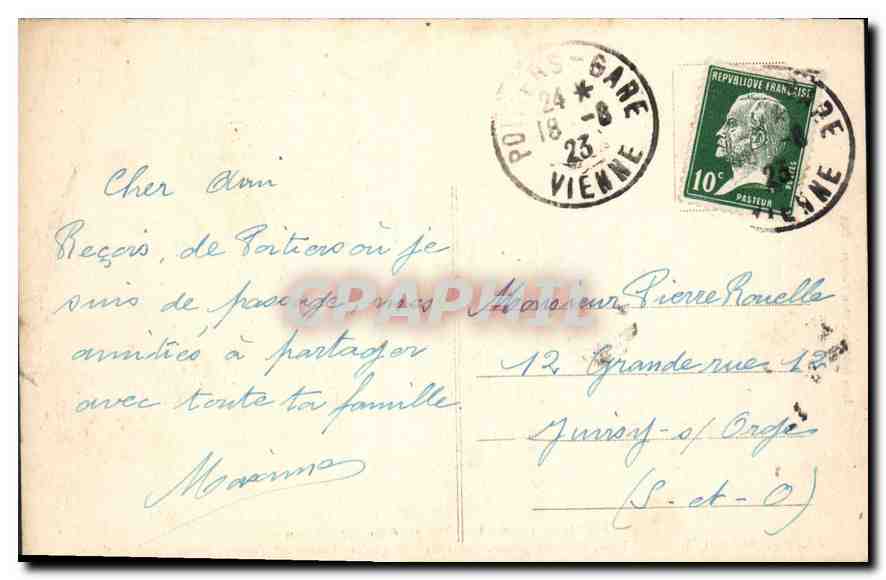 POITIERS-GARE
24 *
18 -8
23
VIENNE
REPVBLIQUE FRANÇAISE
10c
POSTES
PASTEUR
GARE
VIENNE
Cher ami
Reçois, de Poitiers où je
suis de passage, mes
amitiés à partager
avec toute ta famille.
Maxime
Monsieur Pierre Rouelle
12 Grande rue 12
Juvisy-s/ Orge
(S-et-O)
GRAPHIL